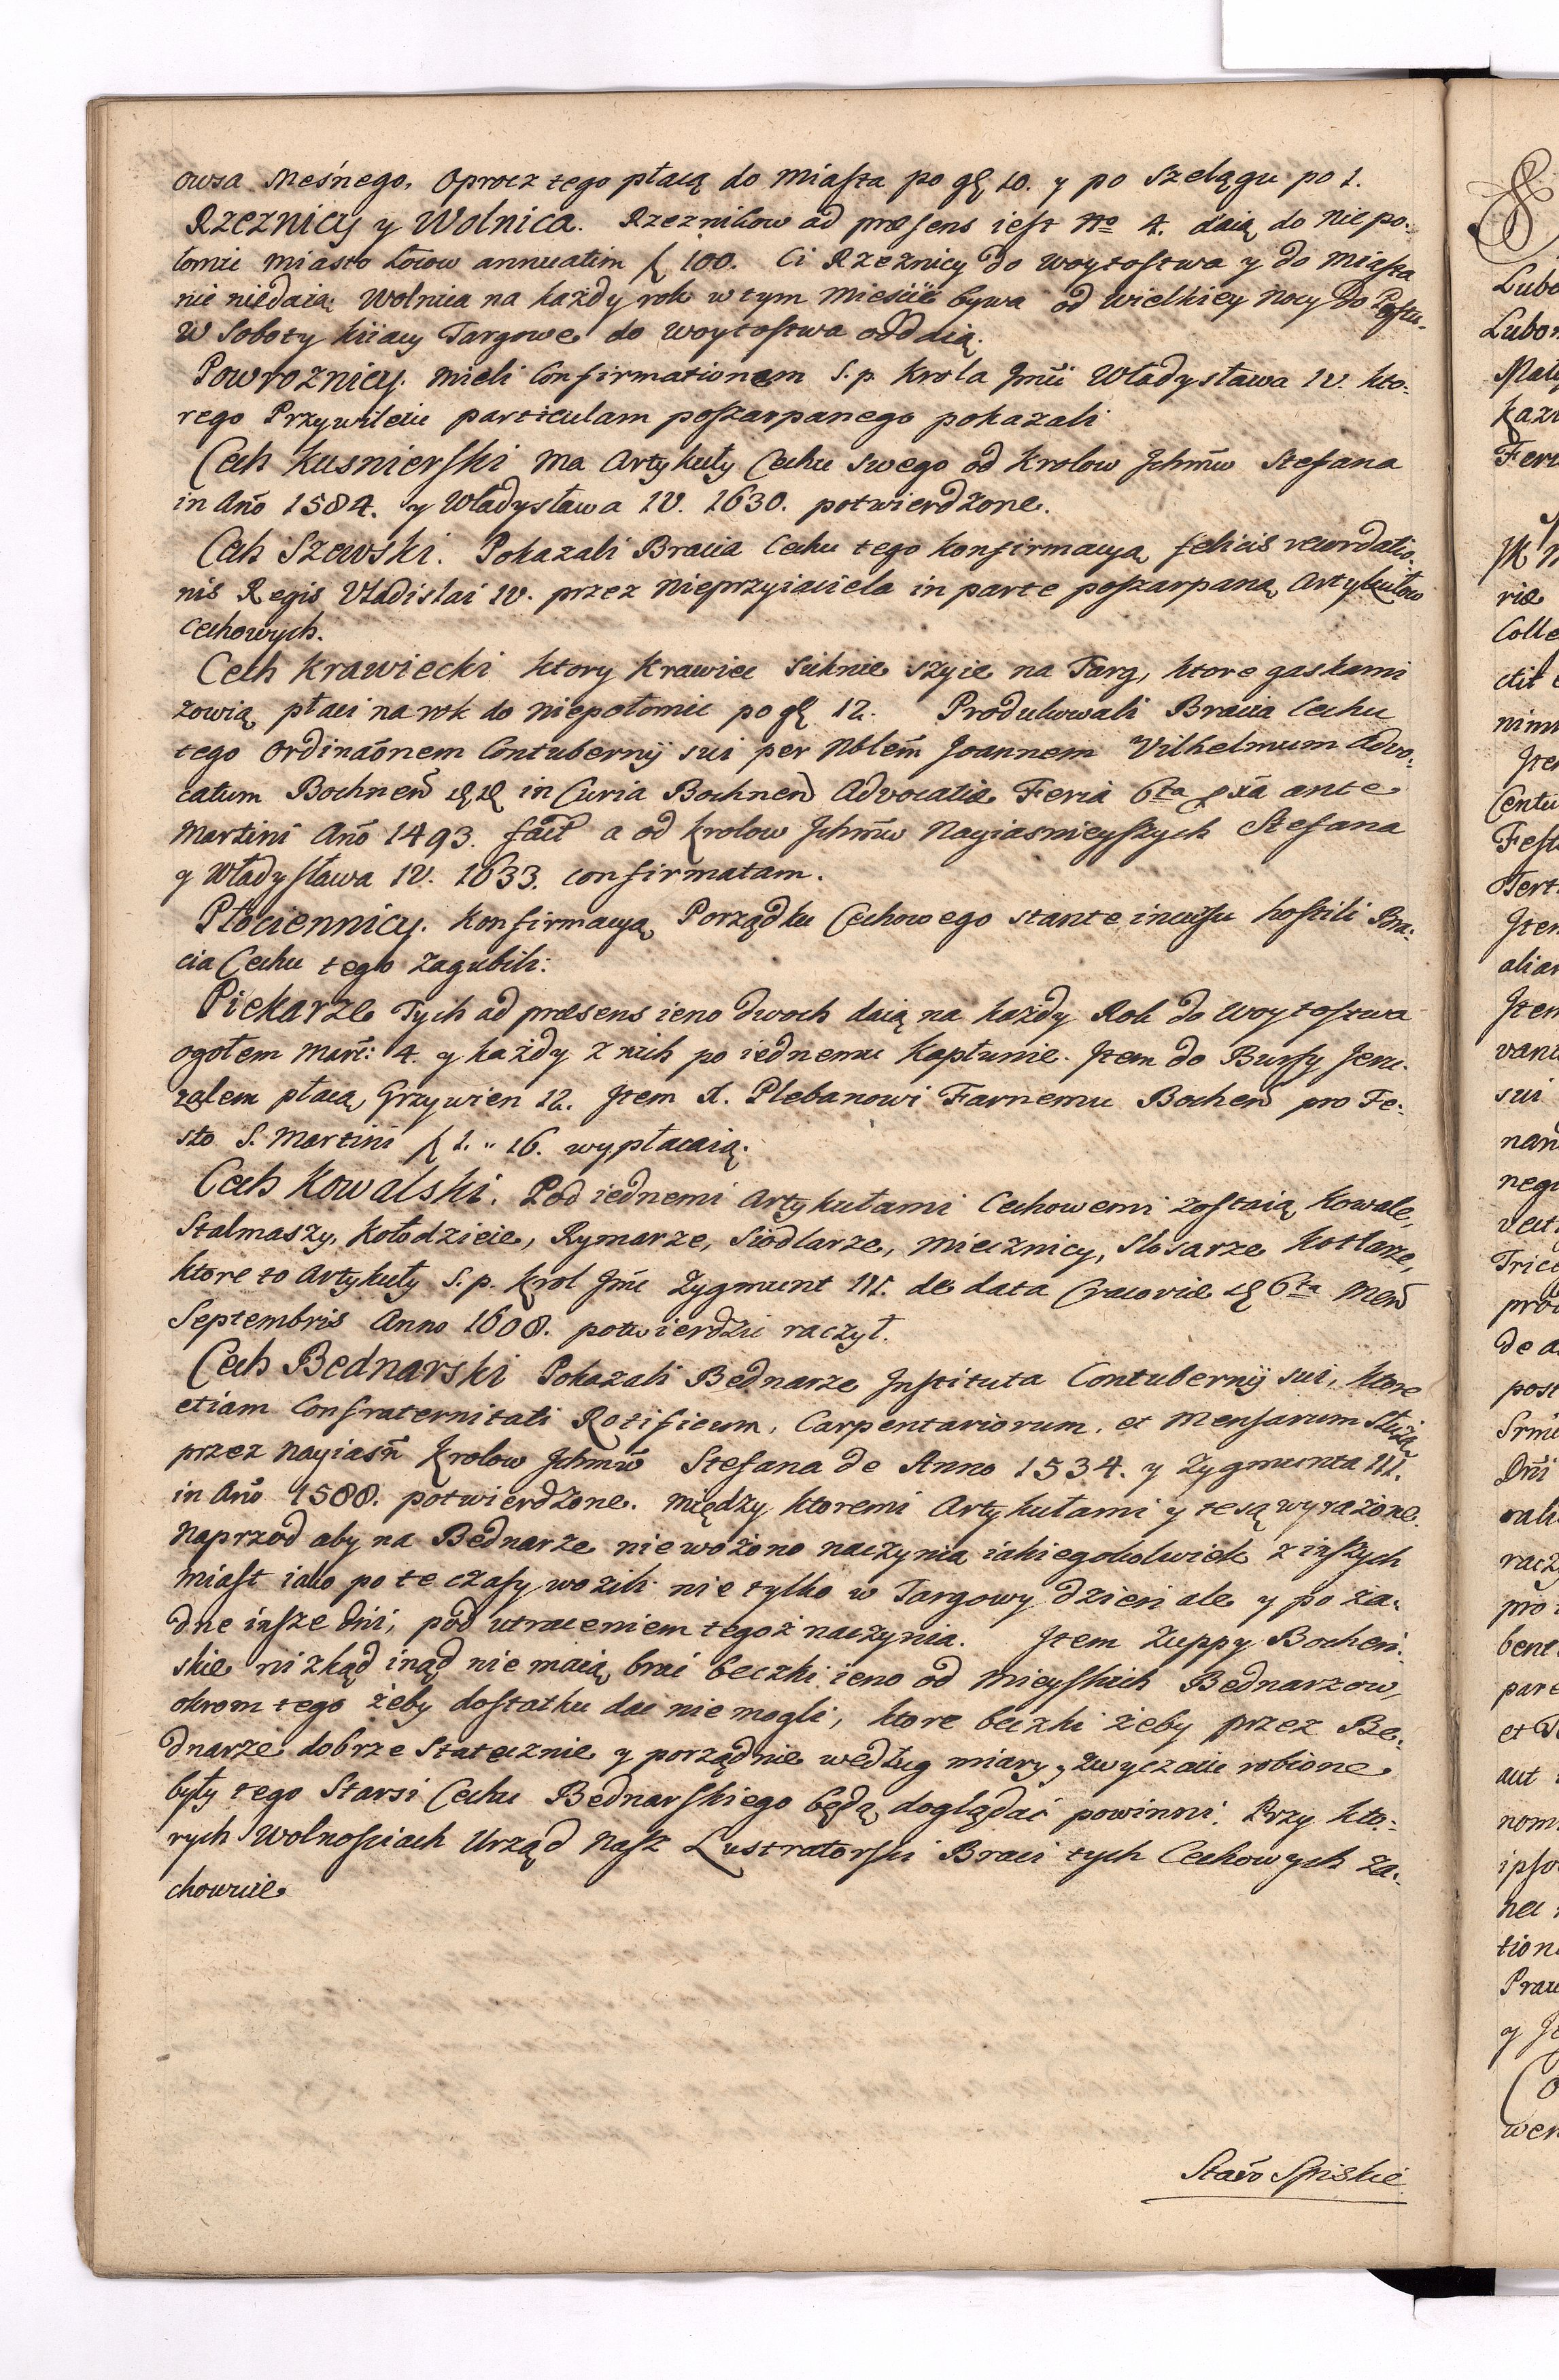 owsa Meśnego, Oprocz tego płacą do Miasta po gß 10. y po Szelągu po 1.
Rzeznicy y Wolnica. Rzeznikow ad præsens iest Nro 4. daią do Niepo:
łomic miasto łoiow annuatim f 100. Ci Rzeznicy do Woytostwa y do Miasta
nic niedaią. Wolnica na każdy rok w tym Mieście bywa od Wielkiey Nocy do
W Soboty kiiacy Targowe do Woytostwa oddaią.
Powroznicy. Mieli Confirmationem S. p. Krola Jmći Władysława IV. kto:
rego Przywileiu particulam poszarpanego pokazali
Cech Kusnierski Ma Artykuły Cechu swego od Krolow Jchmćiw Stefana
in Año 1584. y Władysława IV. 1630. potwierdzone.
Cech Szewski. Pokazali Bracia Cechu tego konfirmacyą felicis recordatio:
nis Regis Vladislai IV. przez Nieprzyiaciela in parte poszarpaną Artykułow
Cechowych.
Cech Krawiecki ktory Krawiec Suknie szyie na Targ, ktore gaskami
zowią płaci na rok do Niepołomic po gß 12. Produkowali Bracia Cechu
tego Ordinaõnem Contubernÿ sui per Nblem Joannem Vilhelmum Advo:
catum Bochneñ in Curia Bochneñ Advocatiæ Feria 6ta pxã ante
Martini Año 1493. fact a od Krolow Jchmćiw Nayiasnieyszych Stefana
y Władysława IV. 1633. confirmatam.
Płociennicy. Konfirmacyą Porządku Cechowego stante incursu hostili Bra:
cia Cechu tego zagubili:
Piekarze Tych ad præsens ieno dwoch daią na każdy Rok do Woytostwa
ogołem Marc: 4. y każdy z nich po iednemu Kapłunie. Jtem do Bursy Jeru:
zalem płacą Grzywien 12. Jtem X. Plebanowi Farnemu Bocheñ pro Fe:
sto S. Martini f 1. " 16. wypłacaią.
Cech Kowalski. Pod iednemi Artykułami Cechowemi zostaią Kowale,
Stalmaszy, Kołodzieie, Rymarze, Siodlarze, Miecznicy, Slosarze Kotlarze,
ktore to Artykuły S. p. Krol Jmć Zygmunt III. de data Cracoviæ 6ta Meñ
Septembris Anno 1608. potwierdzić raczył.
Cech Bednarski Pokazali Bednarze Jnstituta Contubernÿ sui, ktore
etiam Confraternitati Rotificum, Carpentariorum, et Mensarum służą
przez Nayiasñ Krolow Jchmćiw Stefana de Anno 1534. y Zygmunta III.
in Año 1588. potwierdzone. Między ktoremi Artykułami y te są wyrażone.
Naprzod aby na Bednarze niewożono naczynia iakiegokolwiek z inszych
Miast iako po te czasy wozili nie tylko w Targowy dzień ale y po żа:
dne insze dni, pod utraceniem tegoż naczynia. Jtem Zuppy Bocheń:
skie nizkąd inąd nie maią brać beczki ieno od Mieyskich Bednarzow,
okrom tego żeby dostatku dać nie mogli, ktore beczki żeby przez Be:
dnarze dobrze Statecznie y porządnie według miary, zwyczaiu robione
były tego Starsi Cechu Bednarskiego będą doglądać powinni. Przy kto:
rych Wolnościach Urząd Nasz Lustratorski Braci tych Cechowych za:
chowuie.
Stařo Spiskie